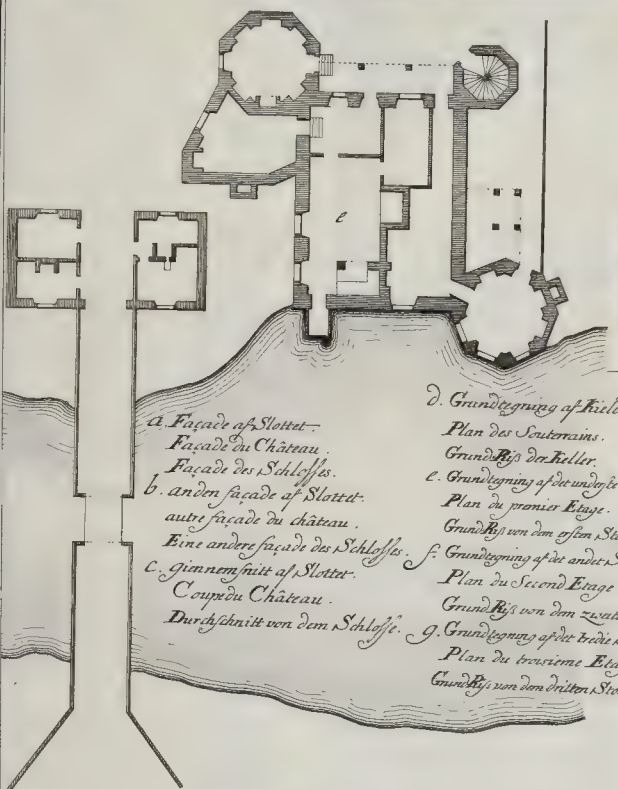 e
a. Façade af Slottet
Façade du Château.
Façade des Schlosses.
b. anden façade af Slottet.
autre façade du château.
Eine andere façade des Schlosses.
c. giennemsnitt af Slottet.
Coupe du Château.
Durchschnitt von dem Schlosse.
d. Grundtegning af
Plan des Souterrains.
GrundRiß der Keller.
e. Grundtegning af det underste
Plan du premier Etage.
GrundRiß von dem ersten
f. Grundtegning af det andet
Plan du Second Etage
GrundRiß von dem
g. Grundtegning af det tredie
Plan du troisieme
GrundRiß von dem dritten